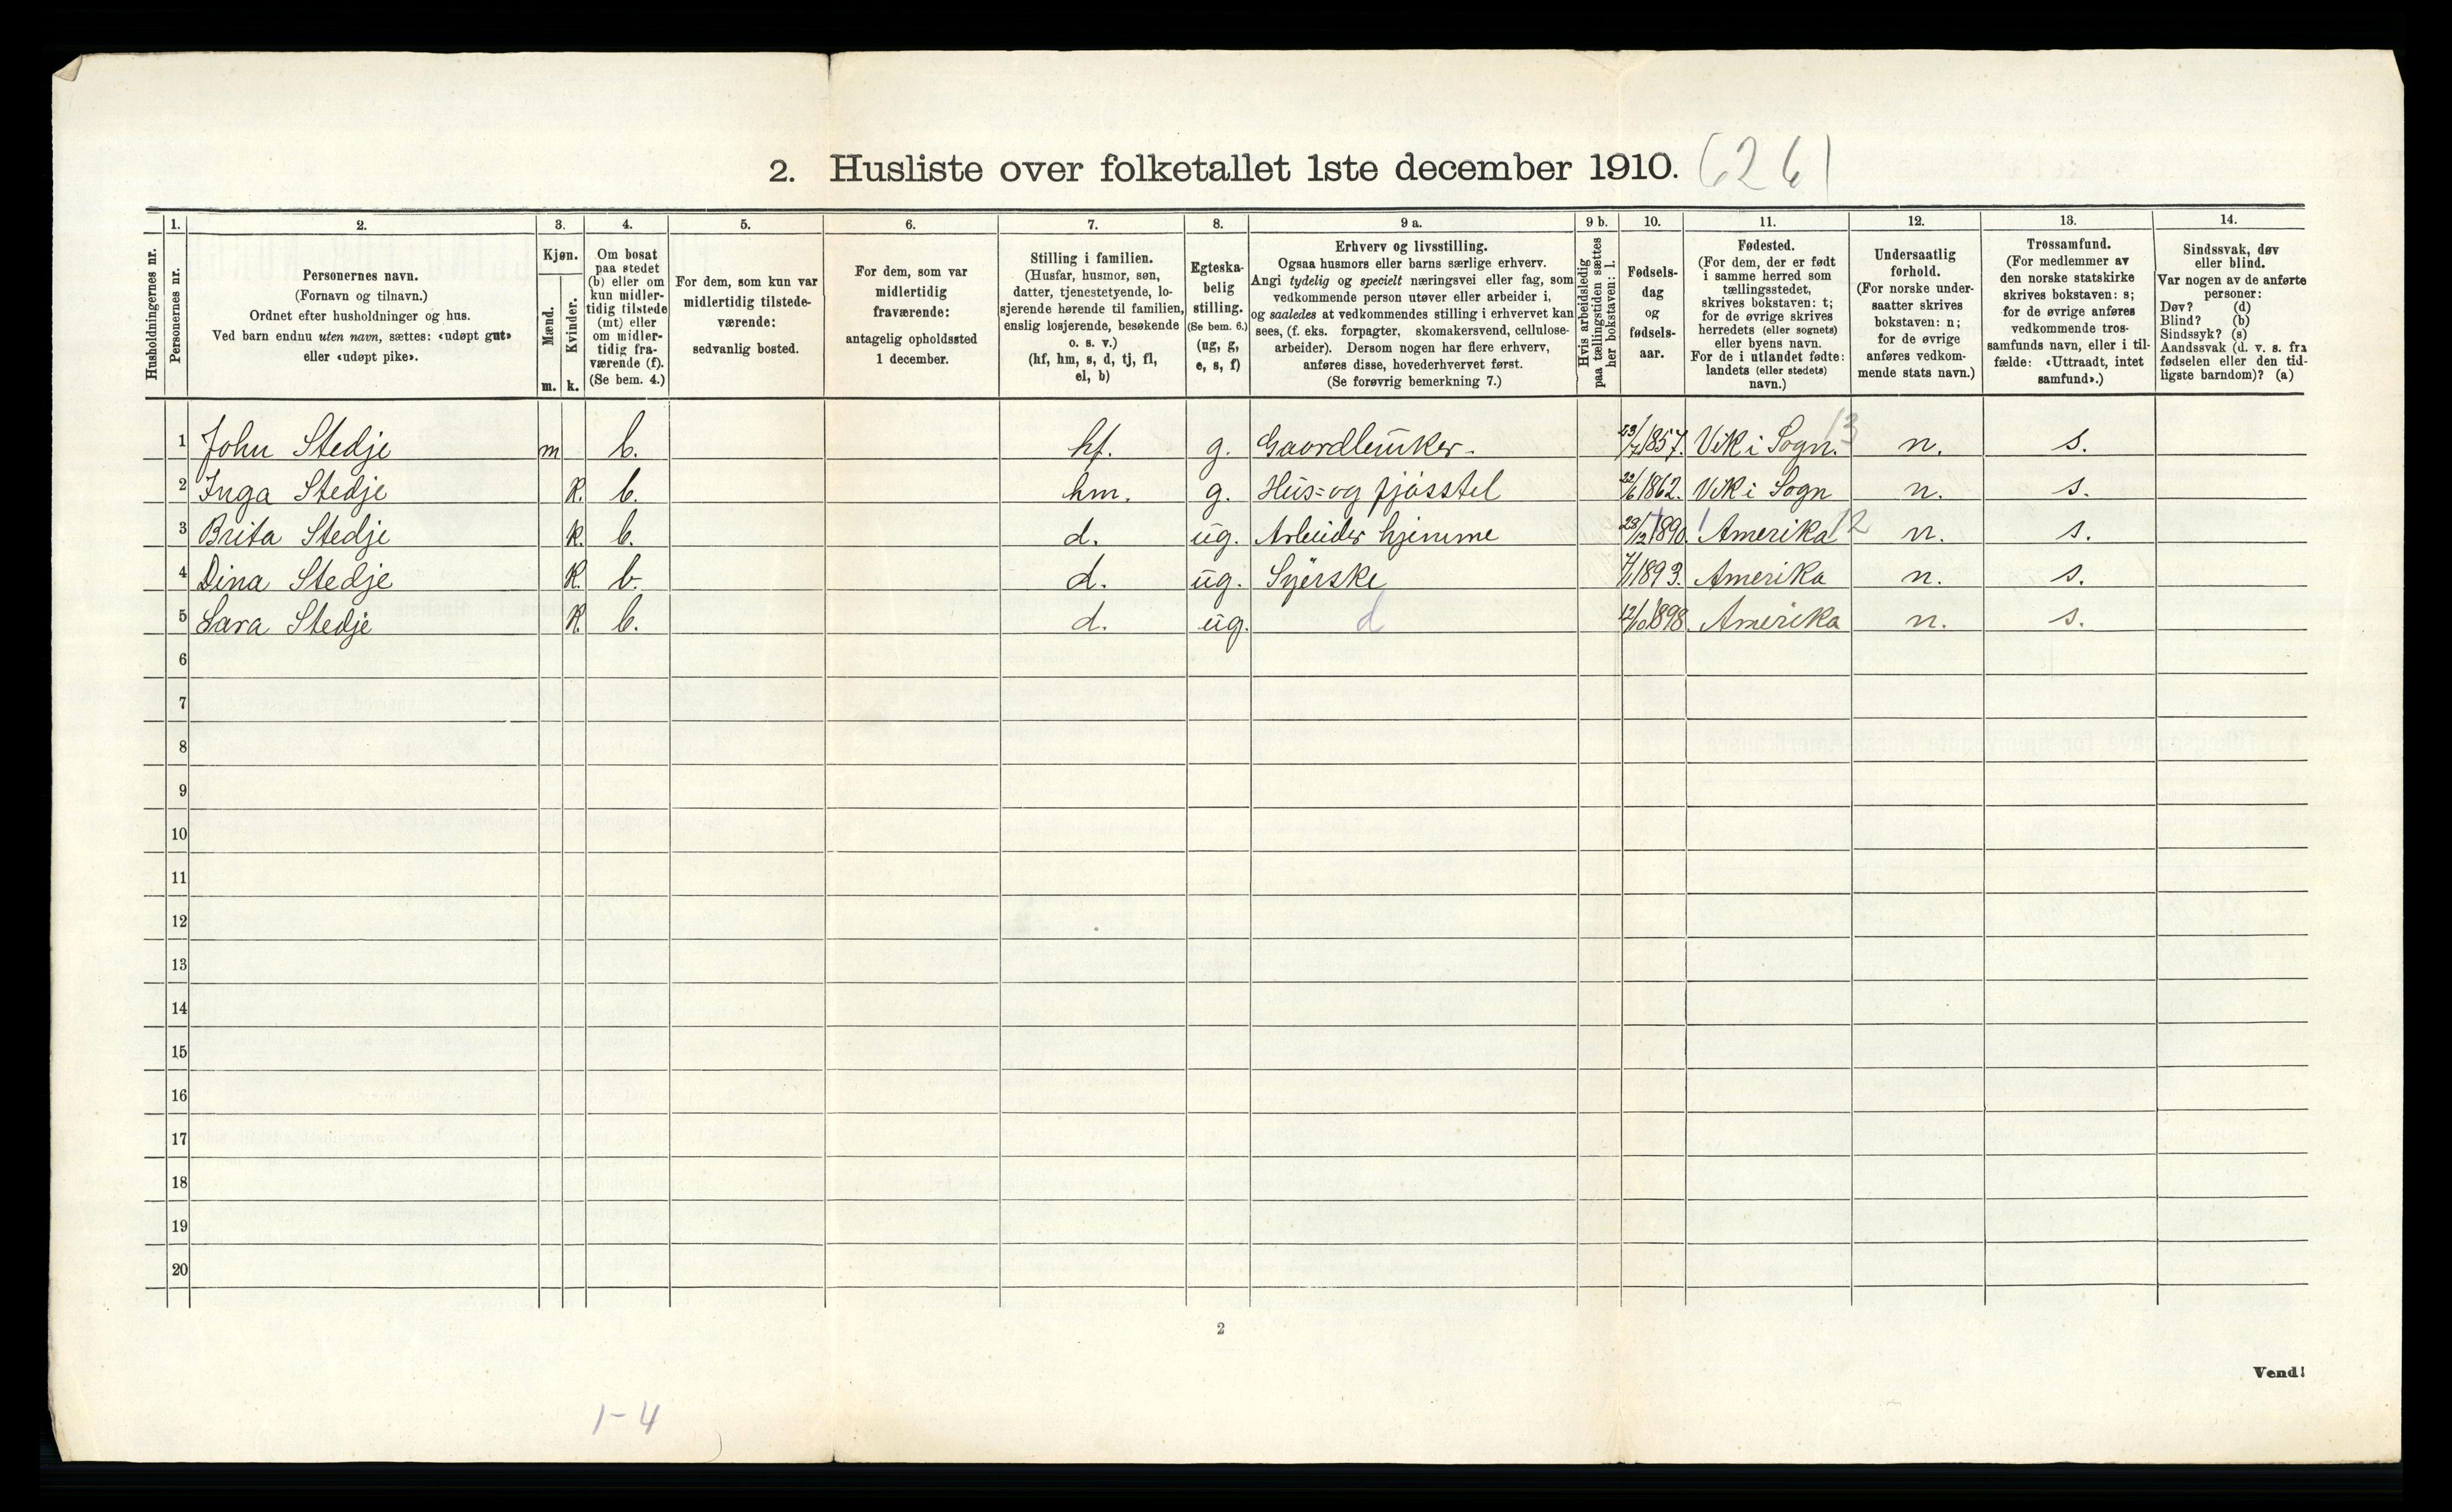 2. Husliste over folketallet 1ste december 1910. 6261
1. 2. 3. 4. 5. 6. 7. 8. 9 a. 9 b. 10. 11. 12. 13. 14.
Husholdningernes nr.
Personernes nr.
Personernes navn.
(Fornavn og tilnavn.)
Ordnet efter husholdninger og hus.
Ved barn endnu uten navn, sættes: «udøpt gut»
eller «udøpt pike».
Kjøn.
Mænd.
Kvinder.
m. k.
Om bosat
paa stedet
(b) eller om
kun midler-
tidig tilstede
(mt) eller
om midler-
tidig fra-
værende (f).
(Se bem. 4.)
For dem, som kun var
midlertidig tilstede-
værende:
sedvanlig bosted.
For dem, som var
midlertidig
fraværende:
antagelig opholdssted
1 december.
Stilling i familien.
(Husfar, husmor, søn,
datter, tjenestetyende, lo-
sjerende hørende til familien,
enslig losjerende, besøkende
o. s. v.)
(hf, hm, s, d, tj, fl,
el, b)
Egteska-
belig
stilling.
(Se bem. 6.)
(ug, g,
e, s, f)
Erhverv og livsstilling.
Ogsaa husmors eller barns særlige erhverv.
Angi tydelig og specielt næringsvei eller fag, som
vedkommende person utøver eller arbeider i,
og saaledes at vedkommendes stilling i erhvervet kan
sees, (f. eks. forpagter, skomakersvend, cellulose-
arbeider). Dersom nogen har flere erhverv,
anføres disse, hovederhvervet først.
(Se forøvrig bemerkning 7.)
Hvis arbeidsledig
paa tællingstiden sættes
her bokstaven: l.
Fødsels-
dag
og
fødsels-
aar.
Fødested.
(For dem, der er født
i samme herred som
tællingsstedet,
skrives bokstaven: t;
for de øvrige skrives
herredets (eller sognets)
eller byens navn.
For de i utlandet fødte:
landets (eller stedets)
navn.)
Undersaatlig
forhold.
(For norske under-
saatter skrives
bokstaven: n;
for de øvrige
anføres vedkom-
mende stats navn.)
Trossamfund.
(For medlemmer av
den norske statskirke
skrives bokstaven: s;
for de øvrige anføres
vedkommende tros-
samfunds navn, eller i til-
fælde: «Uttraadt, intet
samfund».)
Sindssvak, døv
eller blind.
Var nogen av de anførte
personer:
Døv? (d)
Blind? (b)
Sindssyk? (s)
Aandssvak (d. v. s. fra
fødselen eller den tid-
ligste barndom)? (a)
1 John Stedje m b. hf. g. Gaardbruker. 23/7 1857. Vik i Sogn. 13 n. s.
2 Inga Stedje k. b. hm. g. Hus= og fjøsstel 22/6 1862. Vik i Sogn n. s.
3 Brita Stedje k. b. d. ug. Arbeider hjemme 28/12 1890. Amerika 12 n. s.
4 Dina Stedje k. b. d. ug. Syerske 1893. Amerika n. s.
5 Sara Stedje k. b. d. ug. d 12/10 1898 Amerika n. s.
6
7
8
9
10
11
12
13
14
15
16
17
18
19
20
2
Vend!
1-4